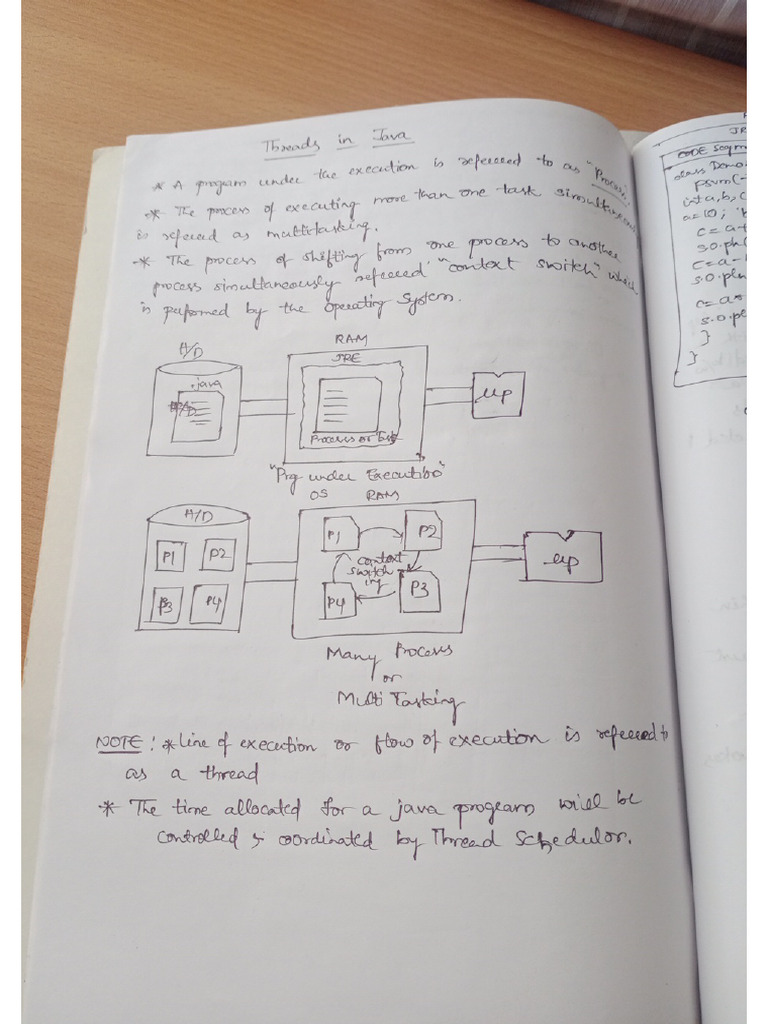 Threads in Java
* A program under the execution is refereed to as "Process".
* The process of executing more than one task simultaneously
is refered as multitasking.
* The process of shifting from one process to another
process simultaneously refereed "context switch" which
is performed by the Operating System.
H/D
RAM
JRE
.java
Process or Task
MP
"Prg under Execution"
OS RAM
H/D
P1 P2
P3 P4
P1 P2
context
switch
ing
P4 P3
MP
Many Process
or
Multi Tasking
NOTE : * Line of execution or flow of execution is refereed to
as a thread
* The time allocated for a java program will be
controlled & coordinated by Thread Schedulor.
JR
CODE Segm
class Demo
psvm(-
int a, b, c
a=10;
c = a+
s.o.pln(
c = a-
s.o.pln
c = a*
s.o.pl
}
}